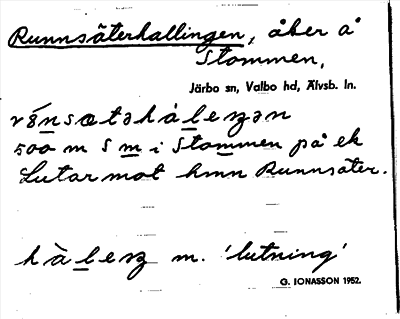 Runnsäterhallingen, åker å
Stommen,
Järbo sn, Valbo hd, Älvsb. ln.
rŏ́nsætəhàleŋən
500 m S m i Stommen på ek
Lutar mot hmn Runnsäter.
hàleŋ m. 'lutning'
G. JONASSON 1952.